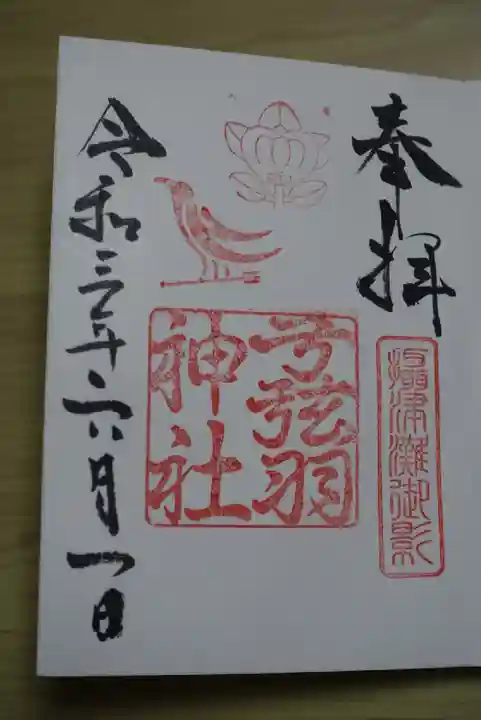 奉拝
攝津灘御影
弓弦羽
神社
令和三年六月一日